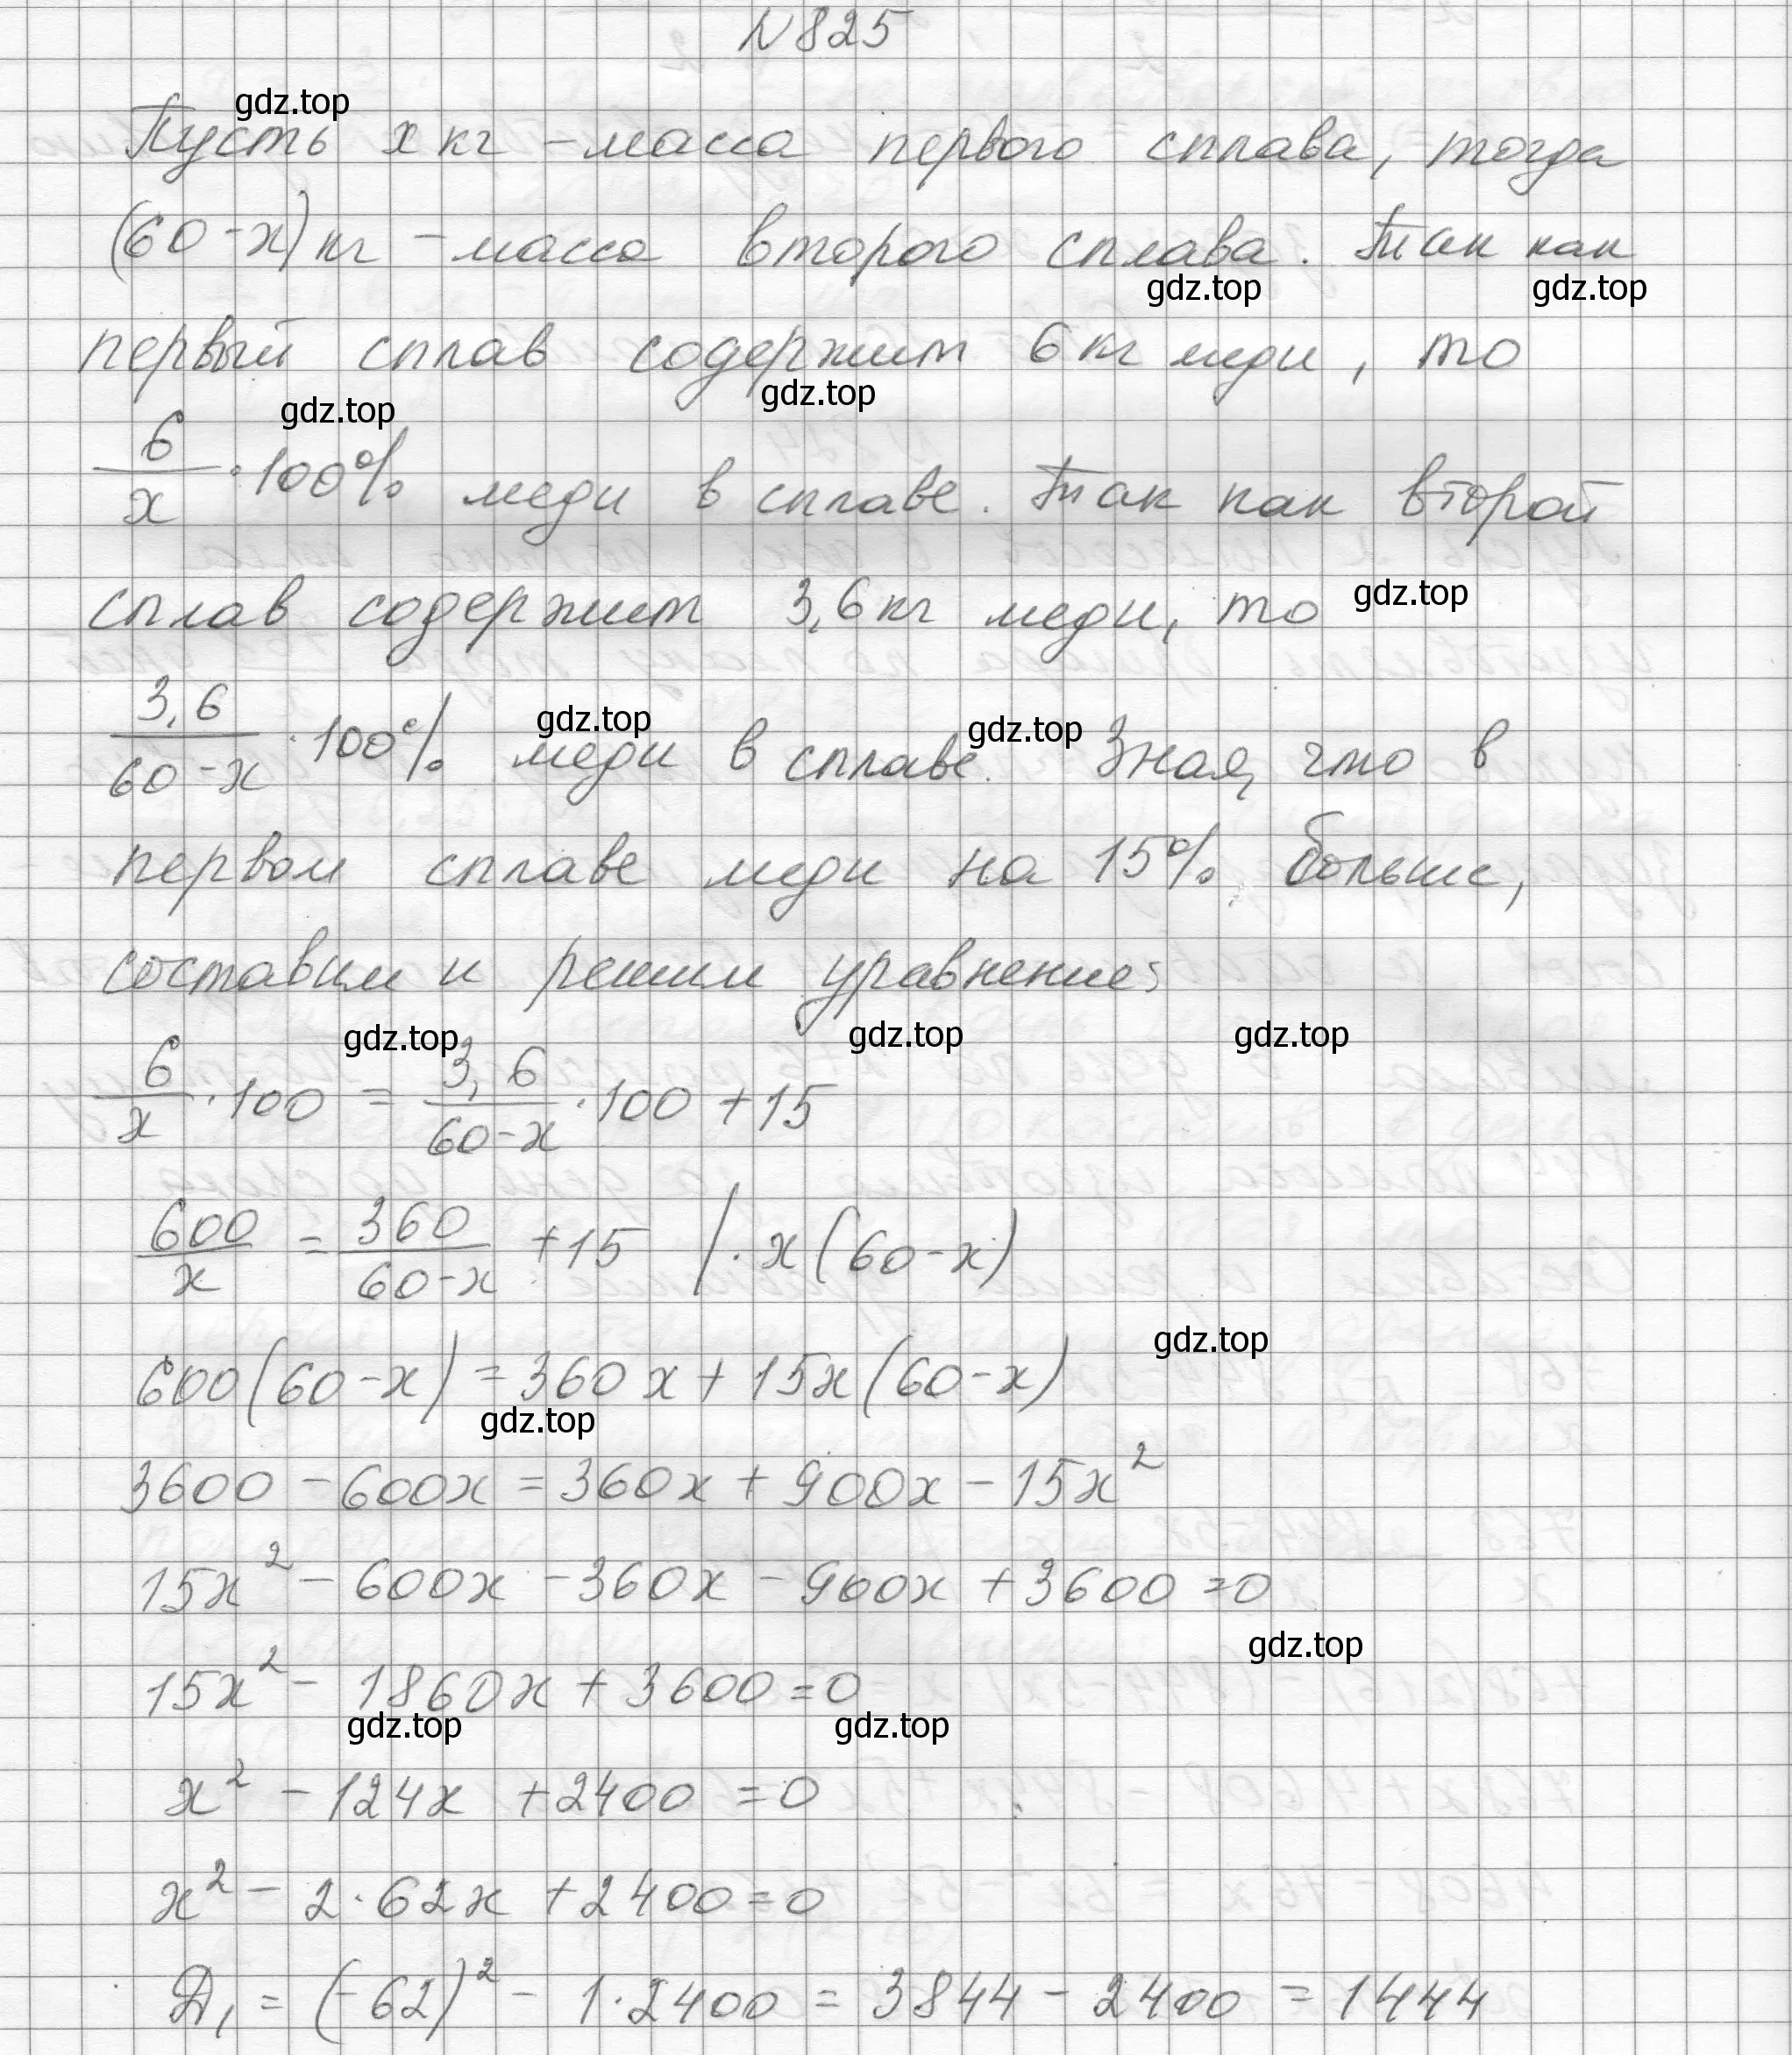 N 825
gdz.top
Пусть x кг - масса первого сплава, тогда
(60-x) кг - масса второго сплава. Так как
gdz.top gdz.top
первый сплав содержит 6 кг меди, то
gdz.top gdz.top
6/x · 100% меди в сплаве. Так как второй
сплав содержит 3,6 кг меди, то gdz.top
3,6/(60-x) · 100% меди в сплаве. Зная, что в
gdz.top gdz.top
первом сплаве меди на 15% больше,
составим и решим уравнение:
gdz.top gdz.top gdz.top
6/x · 100 = 3,6/(60-x) · 100 + 15
600/x = 360/(60-x) + 15 | · x(60-x)
gdz.top
600(60-x) = 360x + 15x(60-x)
gdz.top
3600 - 600x = 360x + 900x - 15x²
15x² - 600x - 360x - 900x + 3600 = 0
gdz.top
15x² - 1860x + 3600 = 0
gdz.top gdz.top
x² - 124x + 2400 = 0
x² - 2·62x + 2400 = 0
Д₁ = (-62)² - 1·2400 = 3844 - 2400 = 1444